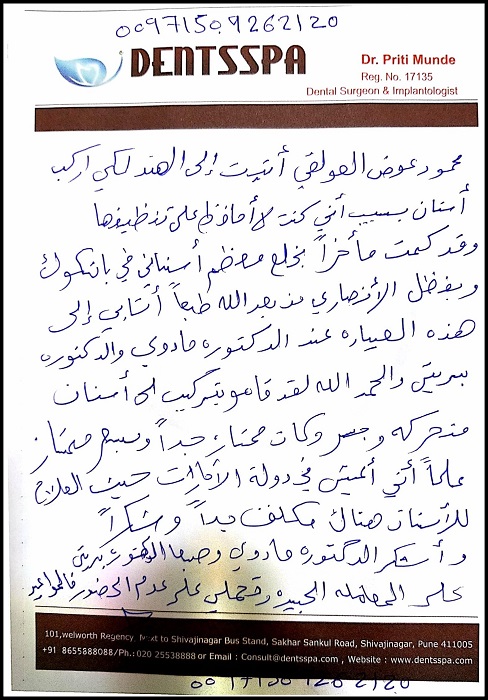 00971509262120
DENTSSPA
Dr. Priti Munde
Reg. No. 17135
Dental Surgeon & Implantologist
محمود عوض العولقي أتيت إلى الهند لكي اركب
أسنان بسبب أني كنت لا أحافظ على تنظيفها
وقد كمت مأخراً بخلع معظم أسناني في بانكوك
وبفظل الأنصاري من بعد الله طبعاً أتابي إلى
هذه العياره عند الدكتوره مادوي والدكتوره
بريتي والحمد الله لقد قامو بتركيب لي أسنان
متحركه و جسر وكان ممتاز جداً وسعر ممتاز
علماً أني أعيش في دولة الأمارات حيث العلاج
للأسنان هناك مكلف جداً وشكراً
و أشكر الدكتوره مادوي وصبعا الدكتوره بريتي
على المعامله الجيده وتحملي على عدم الحضور فالمواعيد
101,welworth Regency, Next to Shivajinagar Bus Stand, Sakhar Sankul Road, Shivajinagar, Pune 411005
+91 8655888088/Ph.: 020 25538888 or Email : Consult@dentsspa.com , Website : www.dentsspa.com